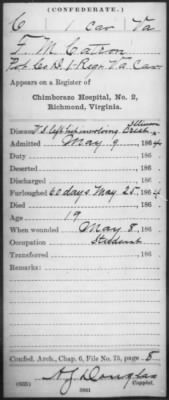 (CONFEDERATE.)
C 1 Cav Va
F. M. Catron
Pvt Co D. 1 Regt Va Cav
Appears on a Register of
Chimborazo Hospital, No. 2,
Richmond, Virginia.
Disease V. S. left hip involving Crest Ilium
Admitted May 9, 1864
Died , 186
Deserted , 186
Discharged , 186
Furloughed 60 days May 25, 1864
Died , 186
Age 19
When wounded May 8, 186
Occupation Student
Transferred , 186
Remarks:
Confed. Arch., Chap. 6, File No. 75, page 8
A. J. Douglas
(635) Copyist.